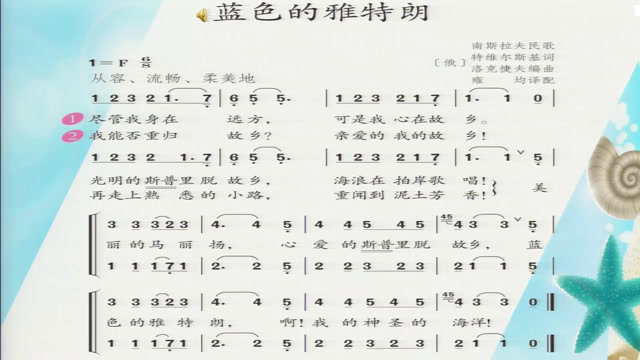 蓝色的雅特朗
南斯拉夫民歌
1=F 6/8
〔俄〕特维尔斯基词
洛克捷夫编曲
从容、流畅、柔美地
雍 均译配
1 2 3 2 1. 7 6 5 5. 1 2 3 2 1 7 1. 1 0
① 尽管我身在 远方, 可是我 心在故 乡。
② 我能否重归 故乡? 亲爱的 我的故 乡!
1 2 3 2 1. 7 6 5 5. 1 2 3 2 1 7 1. 1 5
光明的斯普里脱 故乡, 海浪在拍岸歌 唱! 美
再走上熟 悉的 小路, 重闻到 泥土芳 香!
3 3 3 2 3 4. 4 5 3 3 3 2 3 4 5 4 3 5
丽 的 马 丽 扬, 心 爱 的斯普里脱 故乡, 蓝
1 1 1 7 1 2. 2 5 1 1 1 7 1 2 5
3 3 3 2 3 4. 4 5 3 3 3 2 3 4 5 4 3 0
色 的 雅 特 朗, 啊! 我 的神圣的 海洋!
1 1 1 7 1 2. 2 5 1 1 1 7 1 2 5